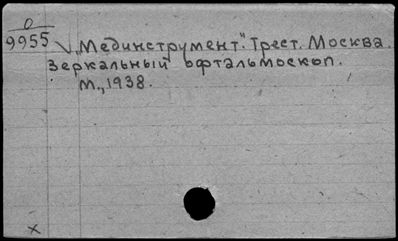 0
9955
V „Мединструмент". Трест. Москва.
Зеркальный офтальмоскоп.
М., 1938.
х